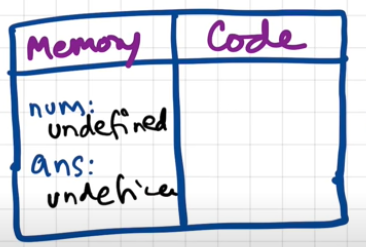 Memory Code
num:
undefined
ans:
undefined